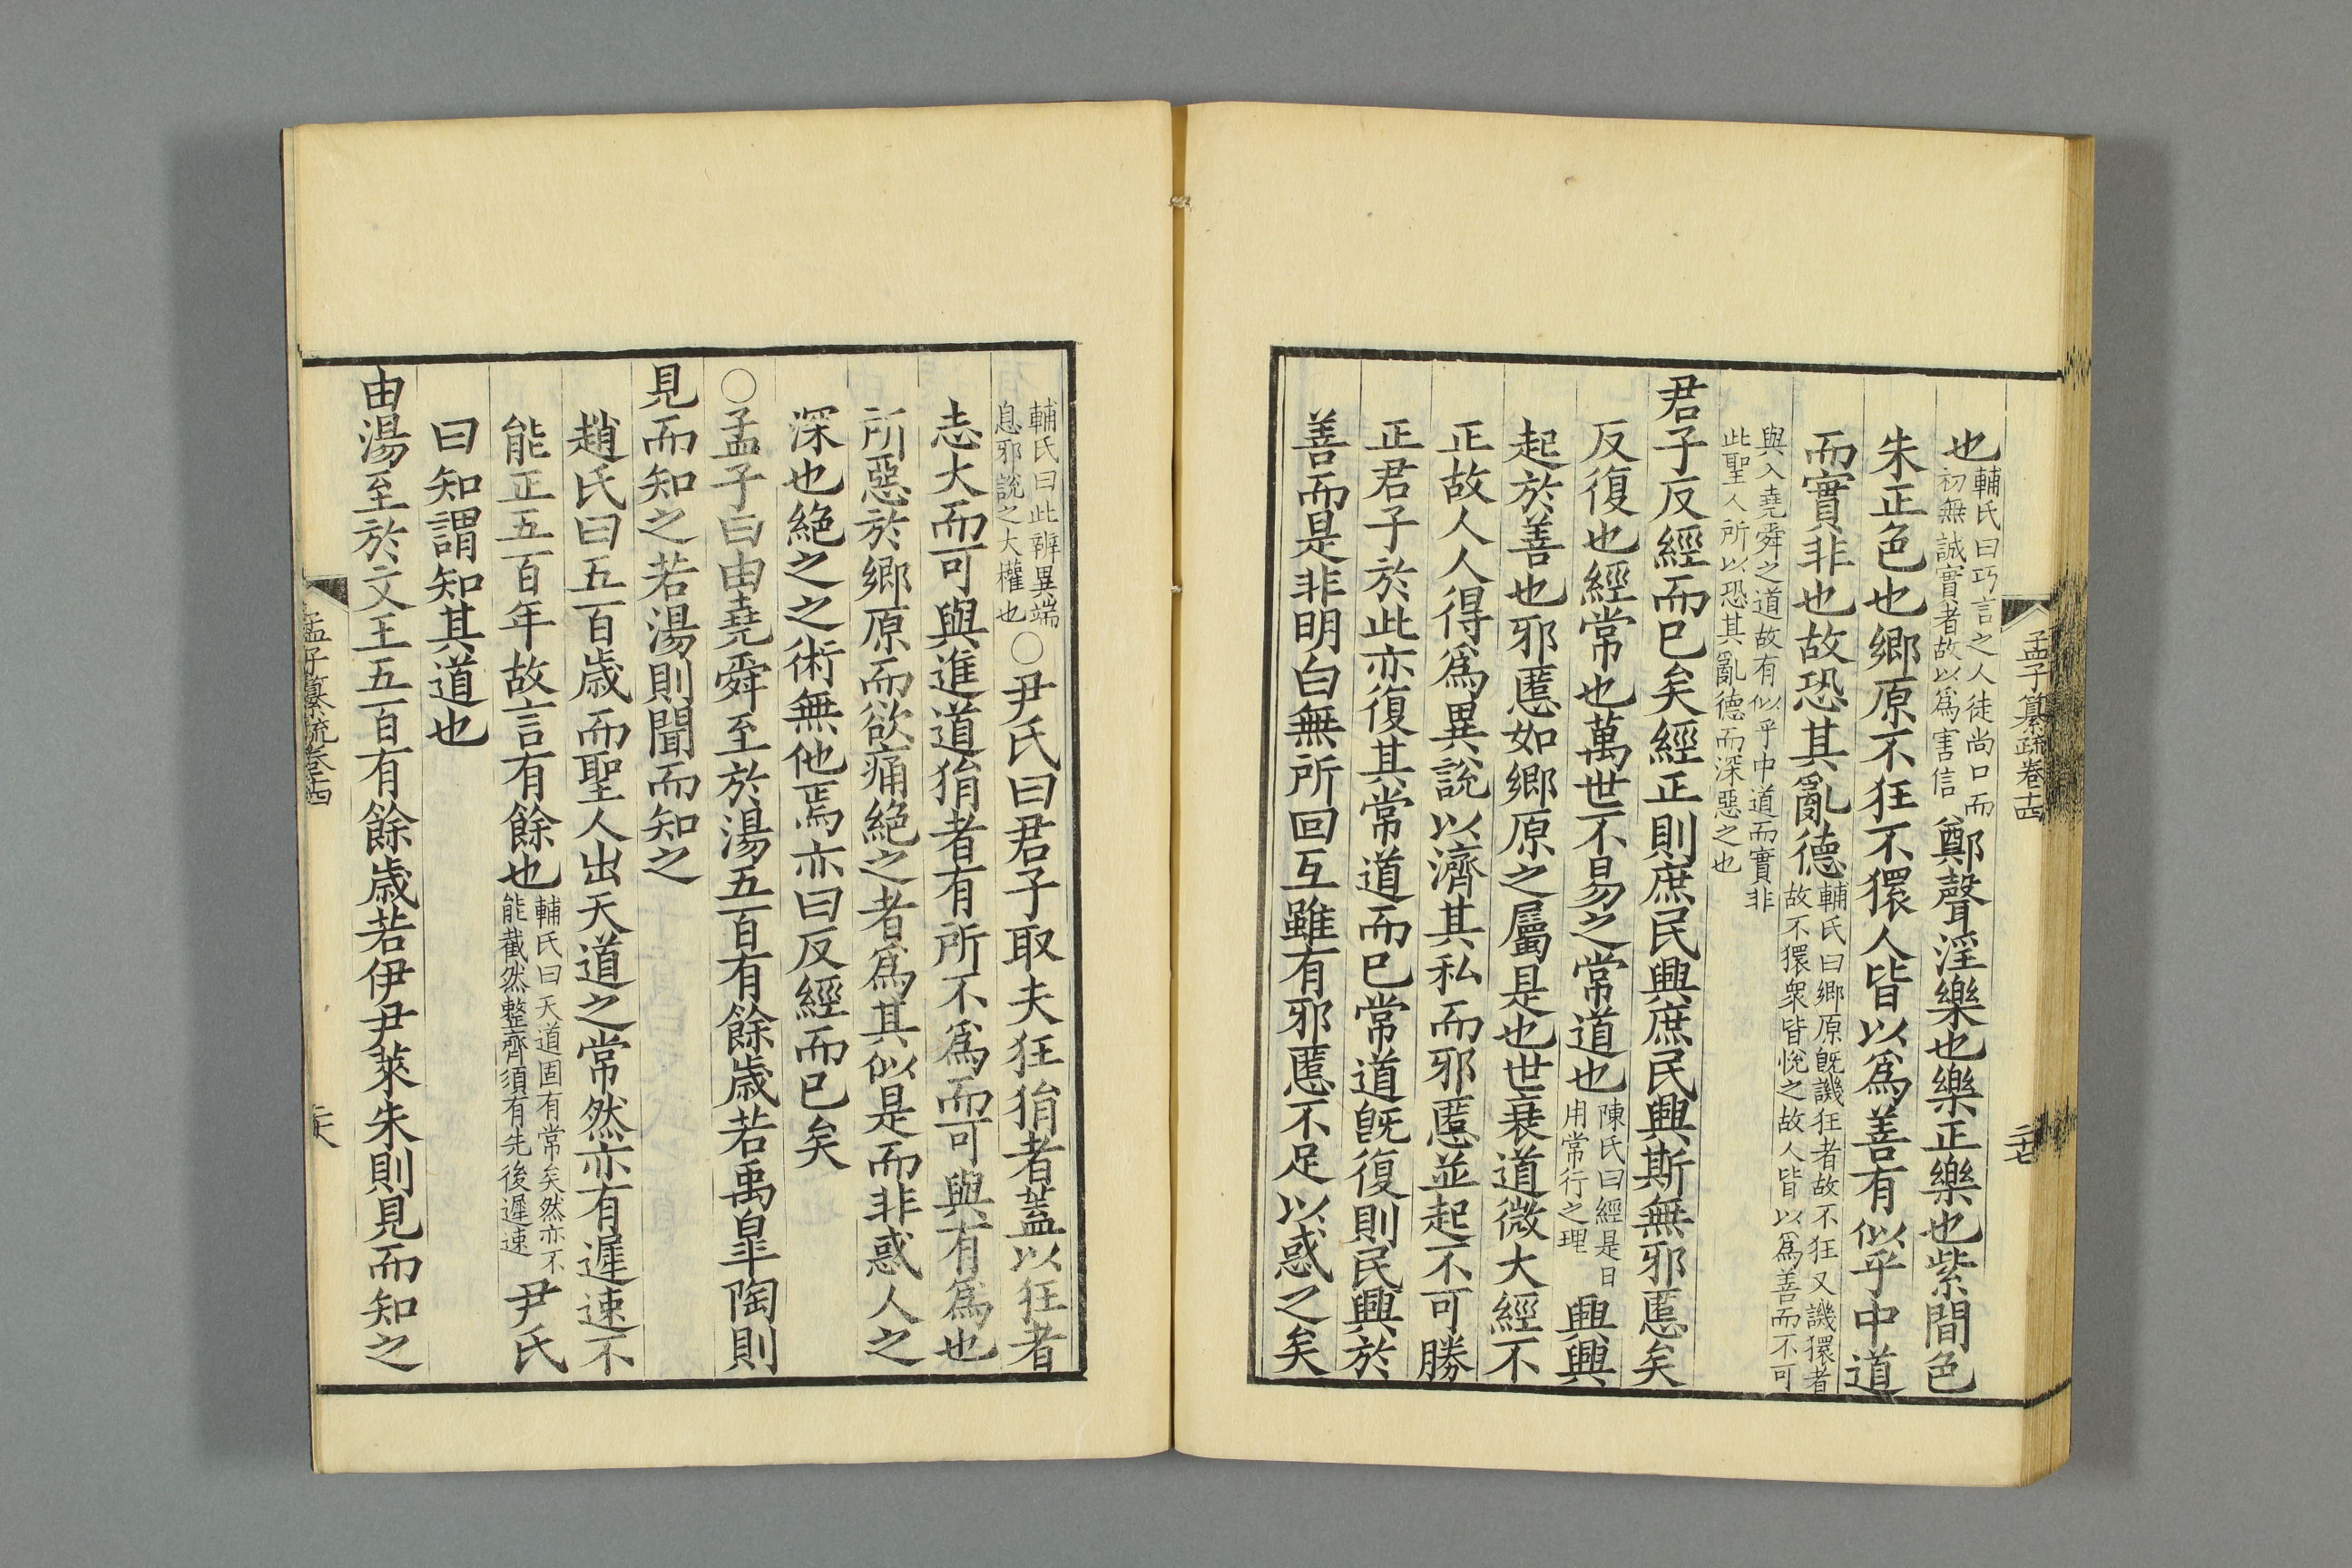 孟子纂疏卷十四
二十七
也
輔氏曰巧言之人徒尚口而
初無誠實者故以爲害信
鄭聲淫樂也樂正樂也紫間色
朱正色也鄉原不狂不獧人皆以爲善有似乎中道
而實非也故恐其亂德
輔氏曰鄉原旣譏狂者故不狂又譏獧者
故不獧衆皆悅之故人皆以爲善而不可
與入堯舜之道故有似乎中道而實非
此聖人所以恐其亂德而深惡之也
君子反經而已矣經正則庶民興庶民興斯無邪慝矣
反復也經常也萬世不易之常道也
陳氏曰經是日
用常行之理
興興
起於善也邪慝如鄉原之屬是也世衰道微大經不
正故人人得爲異說以濟其私而邪慝並起不可勝
正君子於此亦復其常道而已常道旣復則民興於
善而是非明白無所回互雖有邪慝不足以惑之矣
輔氏曰此辨異端
息邪說之大權也
○尹氏曰君子取夫狂狷者蓋以狂者
志大而可與進道狷者有所不爲而可與有爲也
所惡於鄉原而欲痛絕之者爲其似是而非惑人之
深也絕之之術無他焉亦曰反經而已矣
○孟子曰由堯舜至於湯五百有餘歲若禹臯陶則
見而知之若湯則聞而知之
趙氏曰五百歲而聖人出天道之常然亦有遲速不
能正五百年故言有餘也
輔氏曰天道固有常矣然亦不
能截然整齊須有先後遲速
尹氏
曰知謂知其道也
由湯至於文王五百有餘歲若伊尹萊朱則見而知之
孟子纂疏卷十四